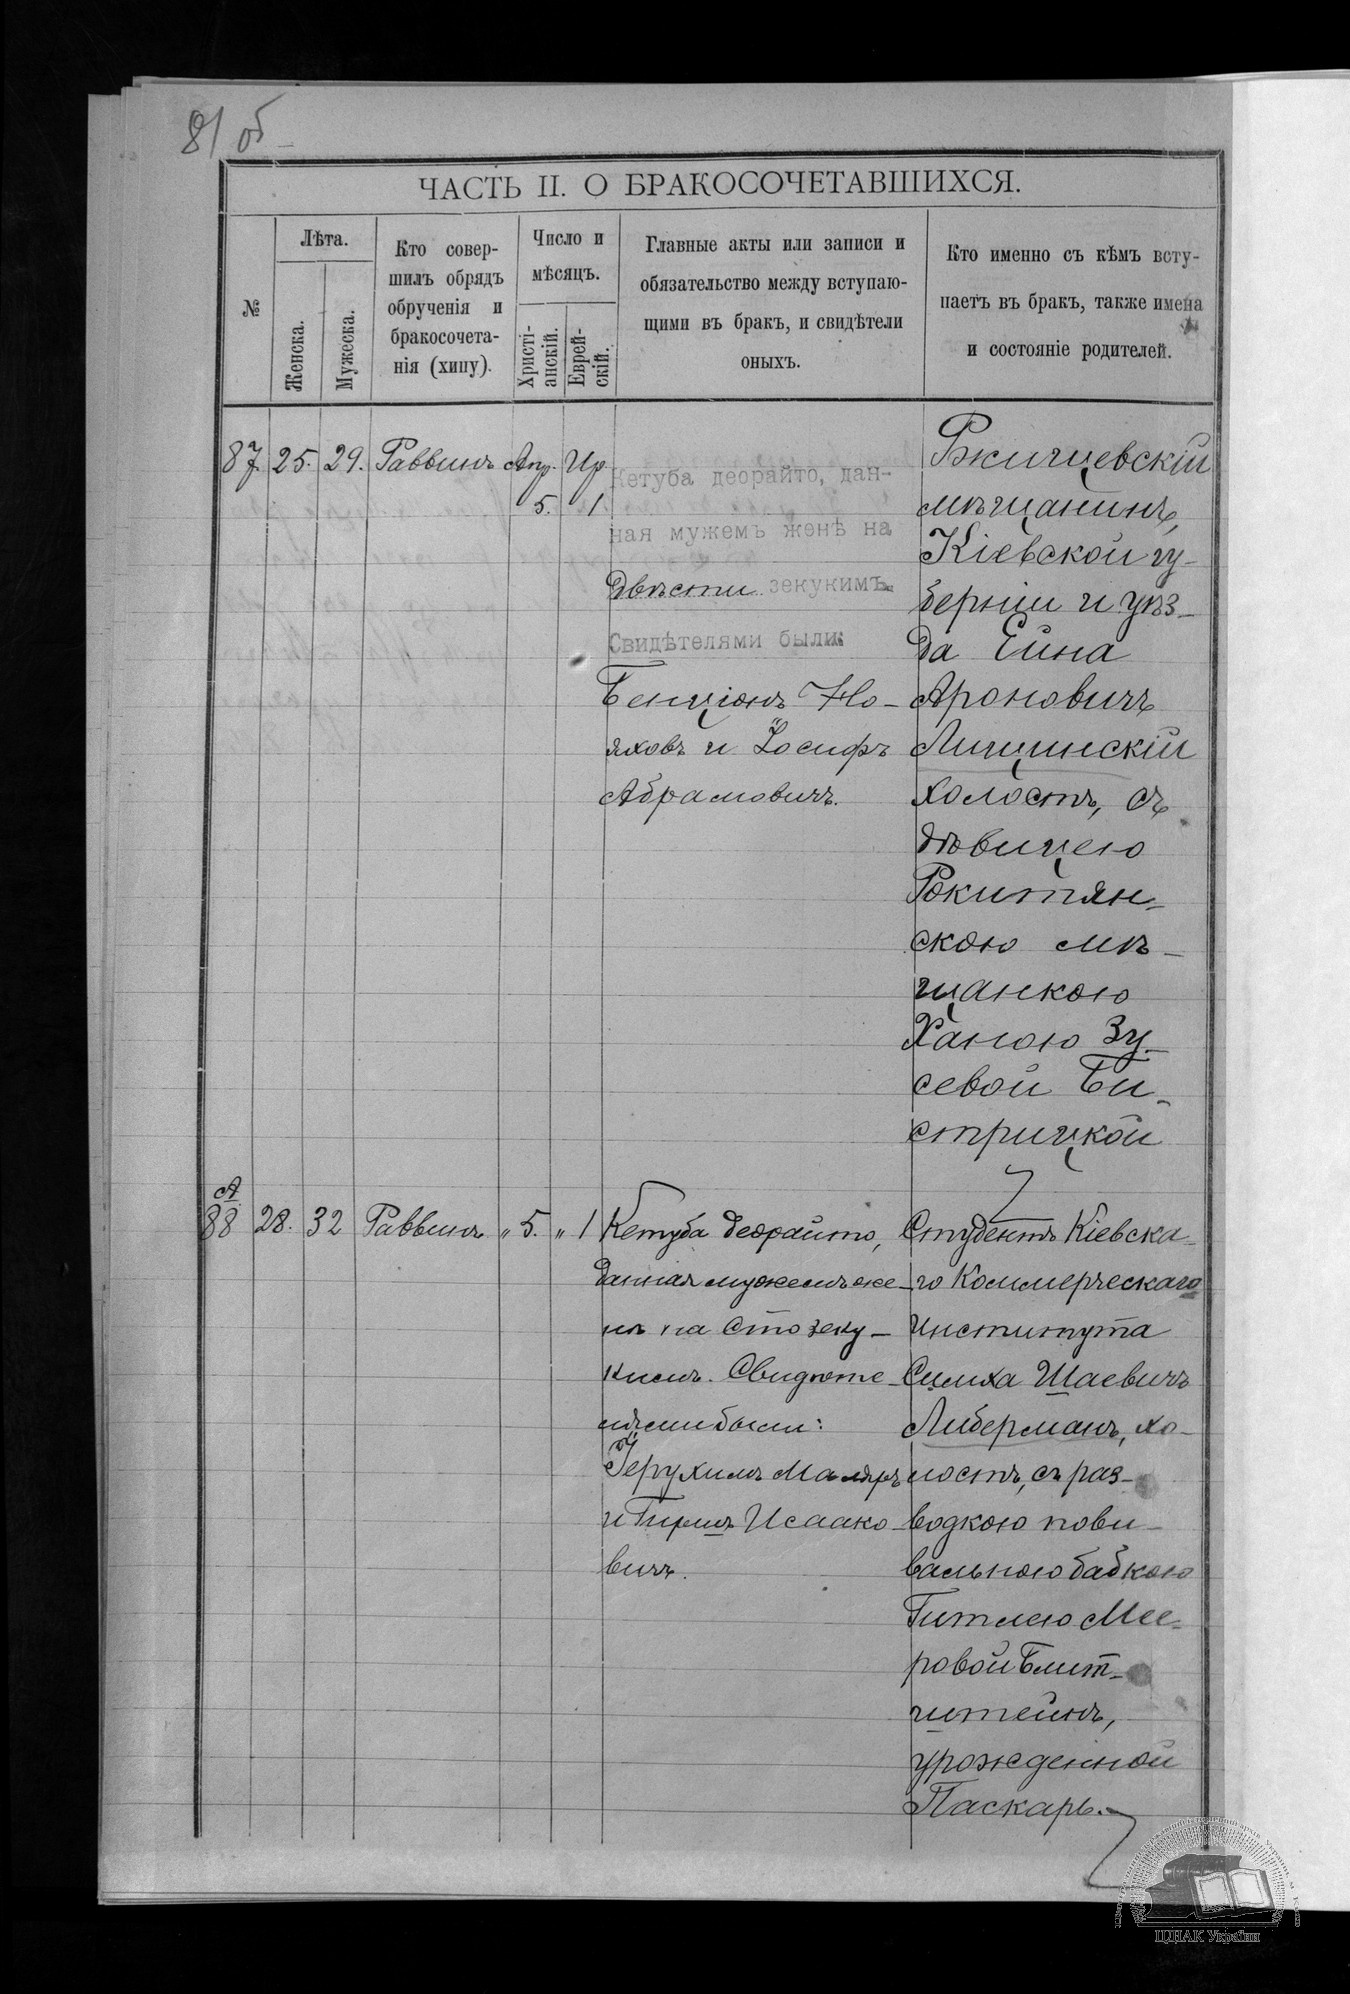 81 об
ЧАСТЬ II. О БРАКОСОЧЕТАВШИХСЯ.
№
Лѣта.
Женска.
Мужеска.
Кто совер-
шилъ обрядъ
обрученія и
бракосочета-
нія (хипу).
Число и
мѣсяцъ.
Христі-
анскій.
Еврей-
скій.
Главные акты или записи и
обязательство между вступаю-
щими въ бракъ, и свидѣтели
оныхъ.
Кто именно съ кѣмъ всту-
паетъ въ бракъ, также имена
и состояніе родителей.
87. 25. 29. Раввинъ Апр. Ир
5. 1
Кетуба деорайто, дан-
ная мужемъ женѣ на
двѣсти зекукимъ.
Свидѣтелями были:
Бенціонъ Но-
яховъ и Іосифъ
Абрамовичъ.
Ржищевскій
мѣщанинъ,
Кіевской гу-
берніи и уѣз-
да Ейна
Ароновичъ
Лищинскій
холостъ, съ
дѣвицею
Рокитян-
скою мѣ-
щанкою
Ханою Зу-
севой Би-
стрицкой
А
88 28. 32 Раввинъ " 5. " 1
Кетуба деорайто,
данная мужемъ же-
нѣ на сто зеку-
кимъ. Свидѣте-
лями были:
Іерухимъ Маляръ
и Гиршъ Исаако-
вичъ.
Студентъ Кіевска-
го Коммерческаго
Института
Симха Шаевичъ
Либерманъ, хо-
лостъ, съ раз-
водкою пови-
вальною бабкою
Гитлею Мее-
ровой Блит-
штейнъ,
урожденной
Паскарь.
ЦДІАК України